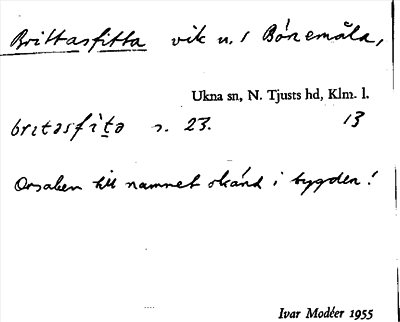 Brittasfitta vik u. / Bönemåla,
Ukna sn, N. Tjusts hd, Klm. l.
britəsfìtə s. 23. 13
Orsaken till namnet okänd i bygden!
Ivar Modéer 1955